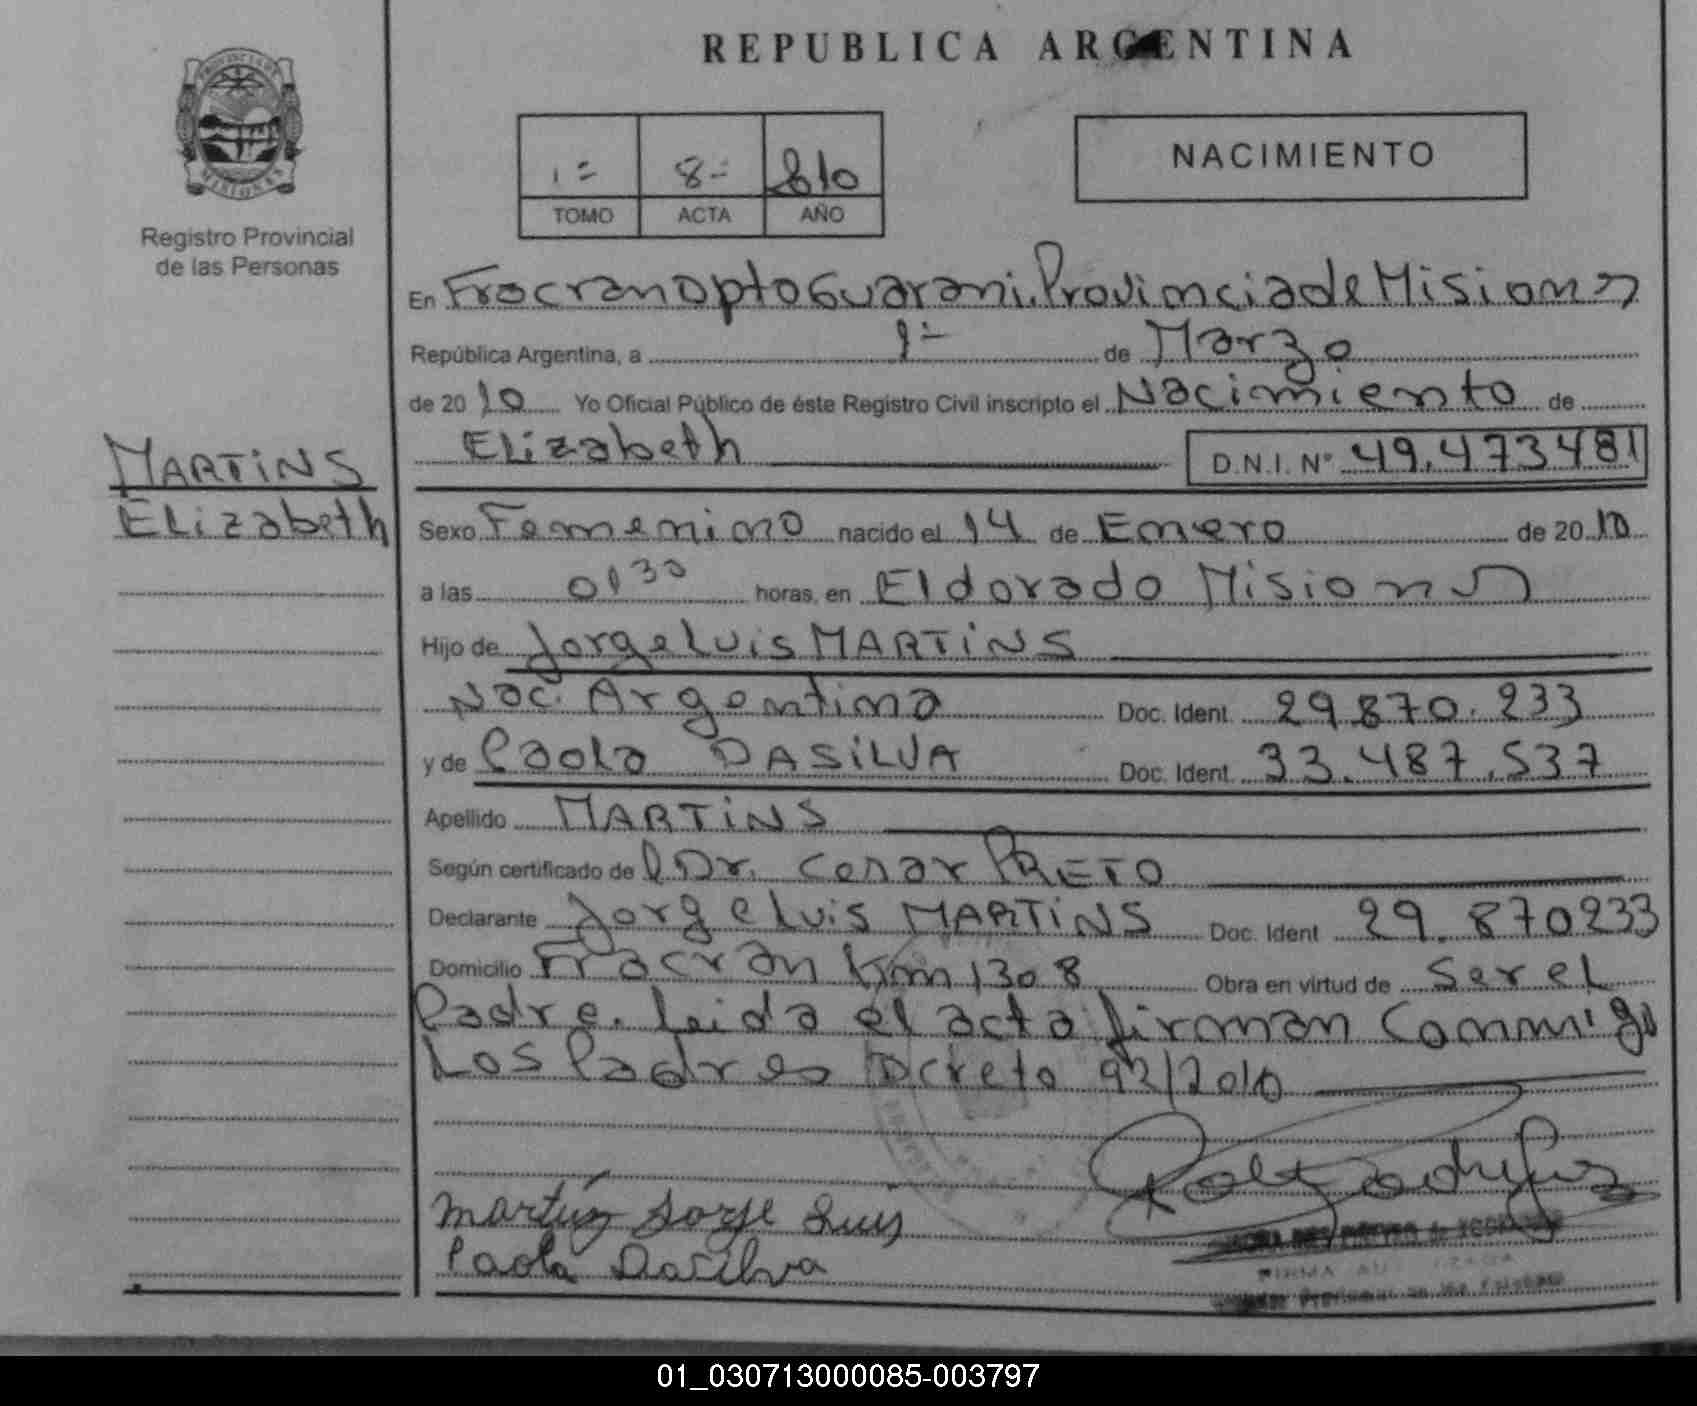 REPUBLICA ARGENTINA
PROVINCIA DE MISIONES
Registro Provincial
de las Personas
1= 8= 810
TOMO ACTA AÑO
NACIMIENTO
En Fracran Dpto Guarani. Provincia de Misiones
República Argentina, a 1= de Marzo
de 20 10 Yo Oficial Público de éste Registro Civil inscripto el Nacimiento de
Elizabeth D.N.I. Nº 49.473481
MARTiNS
Elizabeth
Sexo Femenino nacido el 14 de Enero de 20 10
a las 01 30 horas, en Eldorado Misiones
Hijo de Jorge Luis MARTiNS
Nac. Argentina Doc. Ident. 29.870.233
y de Paola DASiLVA Doc. Ident. 33.487.537
Apellido MARTiNS
Según certificado de l Dr. Cesar PRETO
Declarante Jorge Luis MARTiNS Doc. Ident 29.870233
Domicilio Fracran Km 1308 Obra en virtud de Ser el
Padre. Leida el acta firman Conmigo
Los Padres Dcreto 92/2010
Martins Jorge Luis
Paola Dasilva
FIRMA
01_030713000085-003797